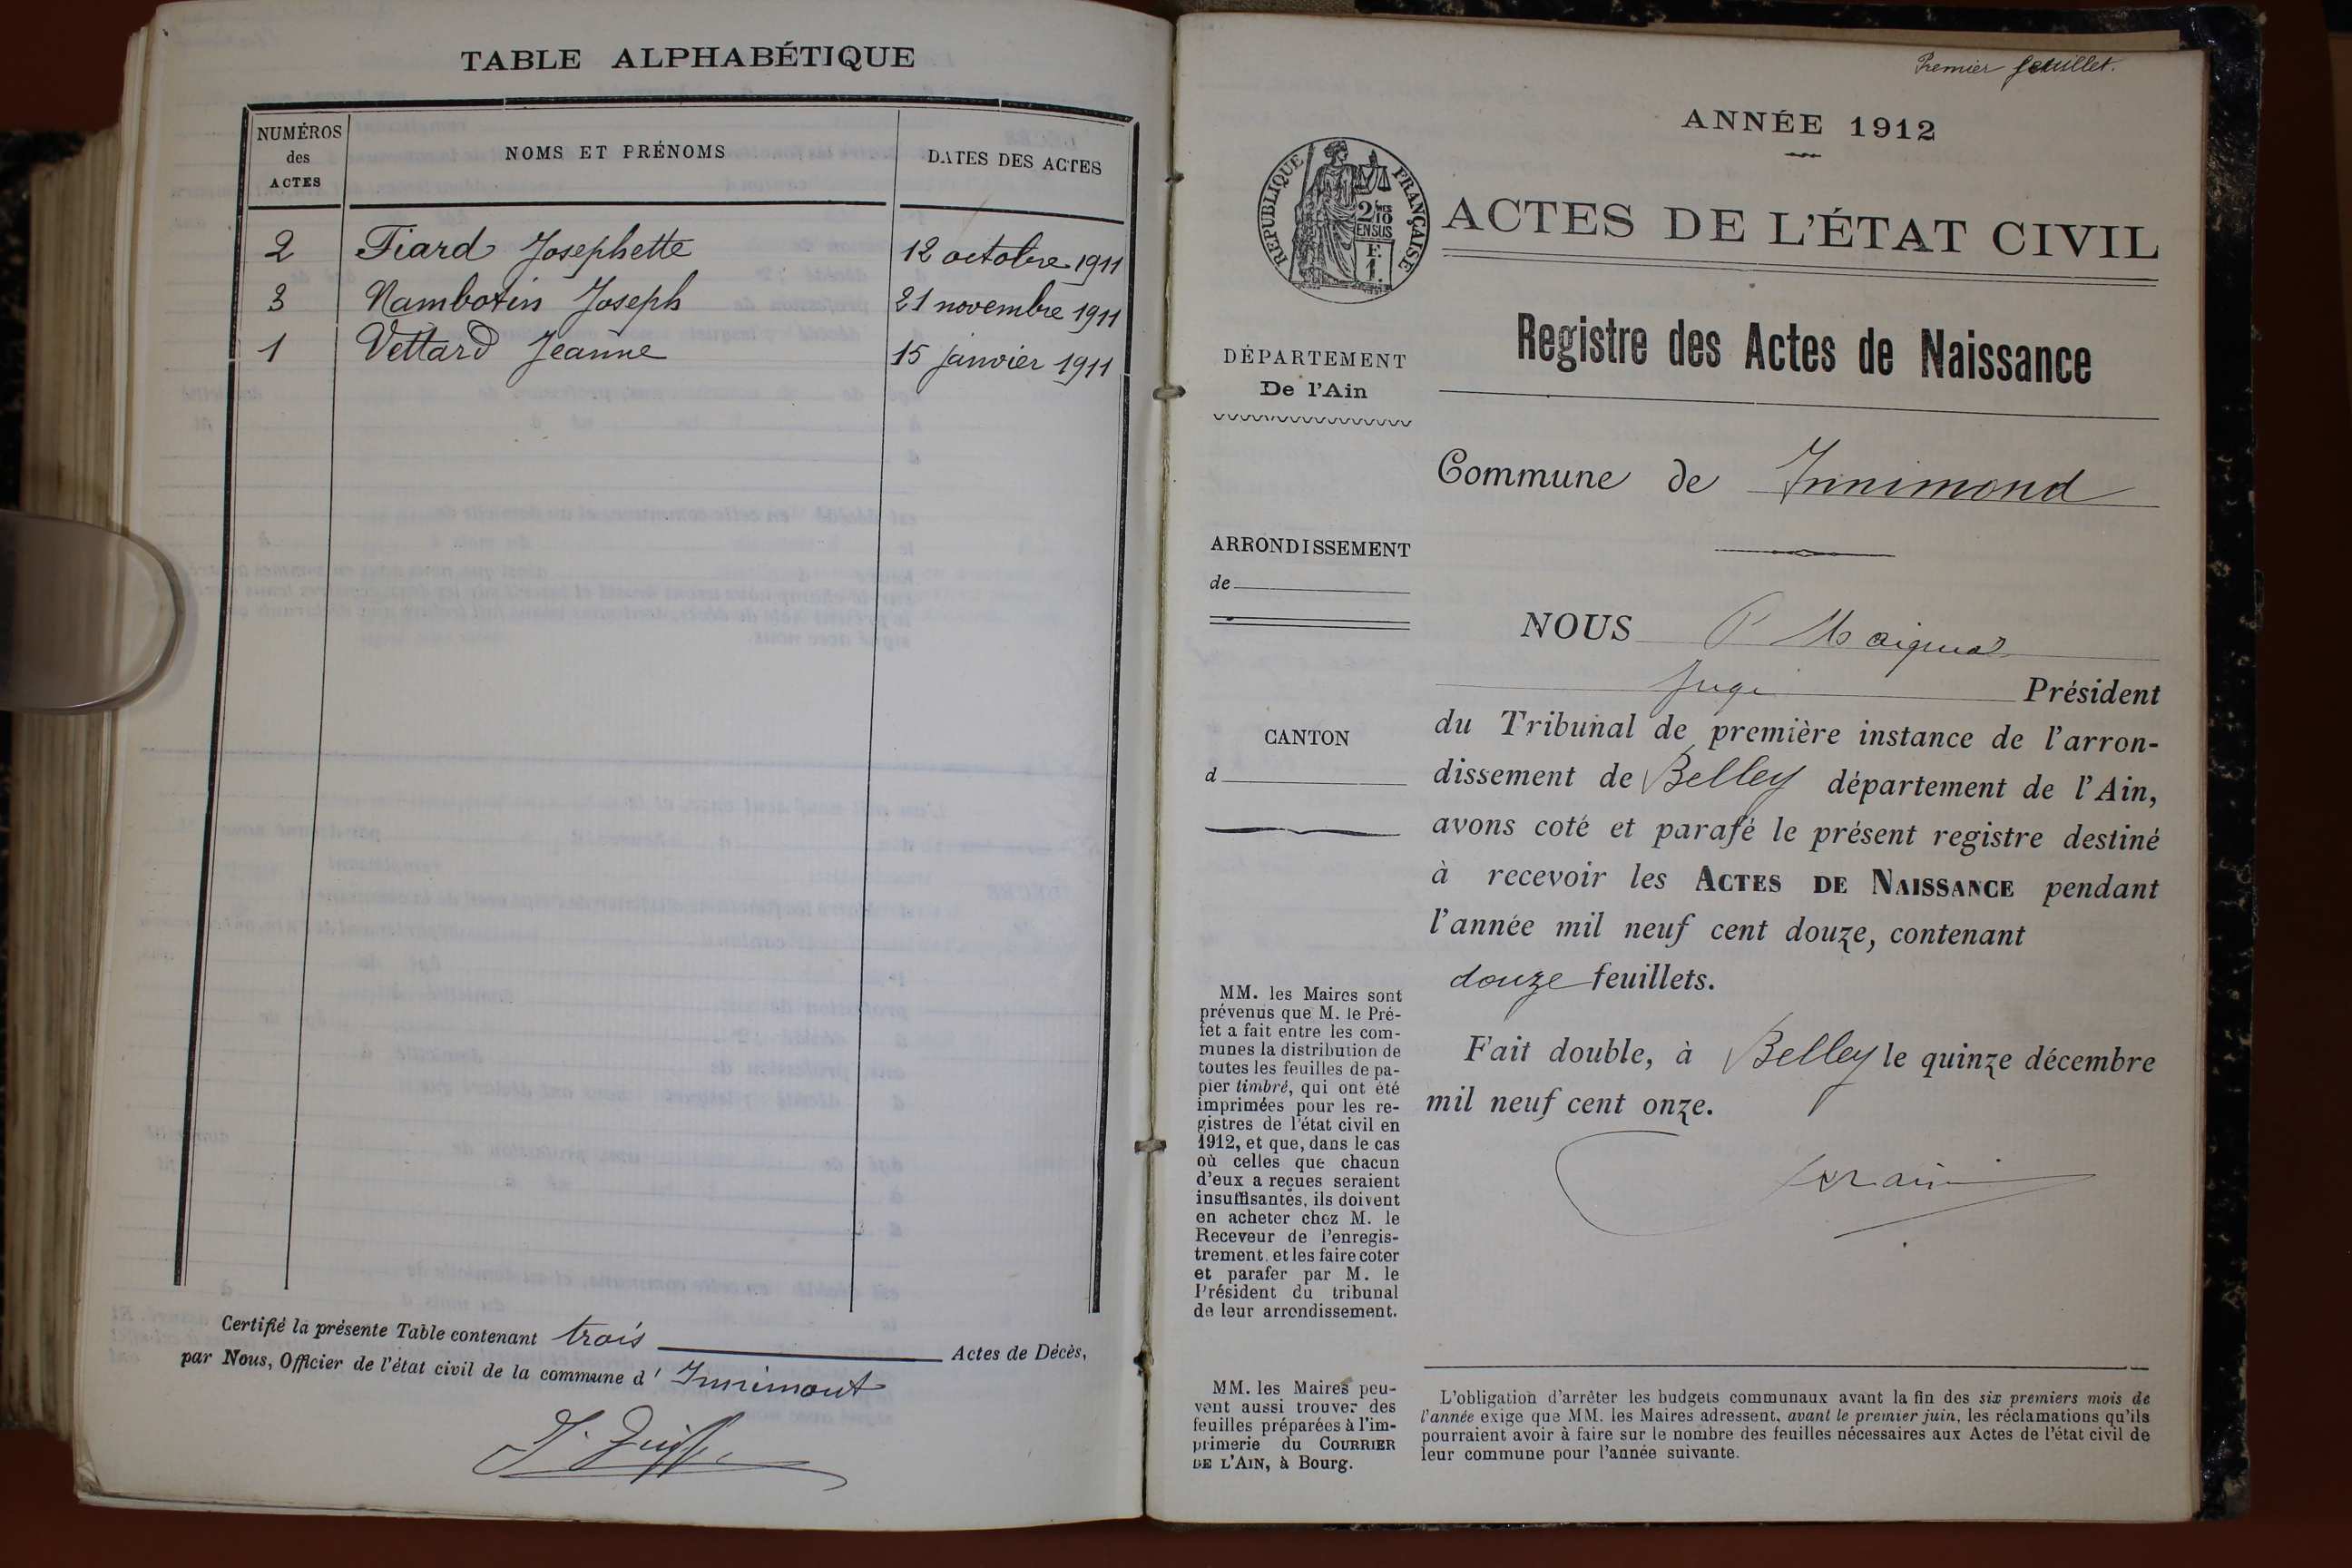 TABLE ALPHABÉTIQUE
NUMÉROS
des
ACTES
NOMS ET PRÉNOMS
DATES DES ACTES
2 Fiard Josephette 12 octobre 1911
3 Nambotin Joseph 21 novembre 1911
1 Vettard Jeanne 15 janvier 1911
Certifié la présente Table contenant trois Actes de Décès,
par Nous, Officier de l'état civil de la commune d' Innimont
Premier feuillet.
ANNÉE 1912
REPUBLIQUE FRANÇAISE
2/10 MES
EN SUS
F.
1.
ACTES DE L'ÉTAT CIVIL
Registre des Actes de Naissance
DÉPARTEMENT
De l'Ain
Commune de Innimond
ARRONDISSEMENT
de
NOUS
Président
du Tribunal de première instance de l'arron-
CANTON
d
dissement de Belley département de l'Ain,
avons coté et parafé le présent registre destiné
à recevoir les ACTES DE NAISSANCE pendant
l'année mil neuf cent douze, contenant
douze feuillets.
Fait double, à Belley le quinze décembre
mil neuf cent onze.
MM. les Maires sont
prévenus que M. le Pré-
fet a fait entre les com-
munes la distribution de
toutes les feuilles de pa-
pier timbré, qui ont été
imprimées pour les re-
gistres de l'état civil en
1912, et que, dans le cas
où celles que chacun
d'eux a reçues seraient
insuffisantes, ils doivent
en acheter chez M. le
Receveur de l'enregis-
trement, et les faire coter
et parafer par M. le
Président du tribunal
de leur arrondissement.
MM. les Maires peu-
vent aussi trouver des
feuilles préparées à l'im-
primerie du COURRIER
DE L'AIN, à Bourg.
L'obligation d'arrêter les budgets communaux avant la fin des six premiers mois de
l'année exige que MM. les Maires adressent, avant le premier juin, les réclamations qu'ils
pourraient avoir à faire sur le nombre des feuilles nécessaires aux Actes de l'état civil de
leur commune pour l'année suivante.